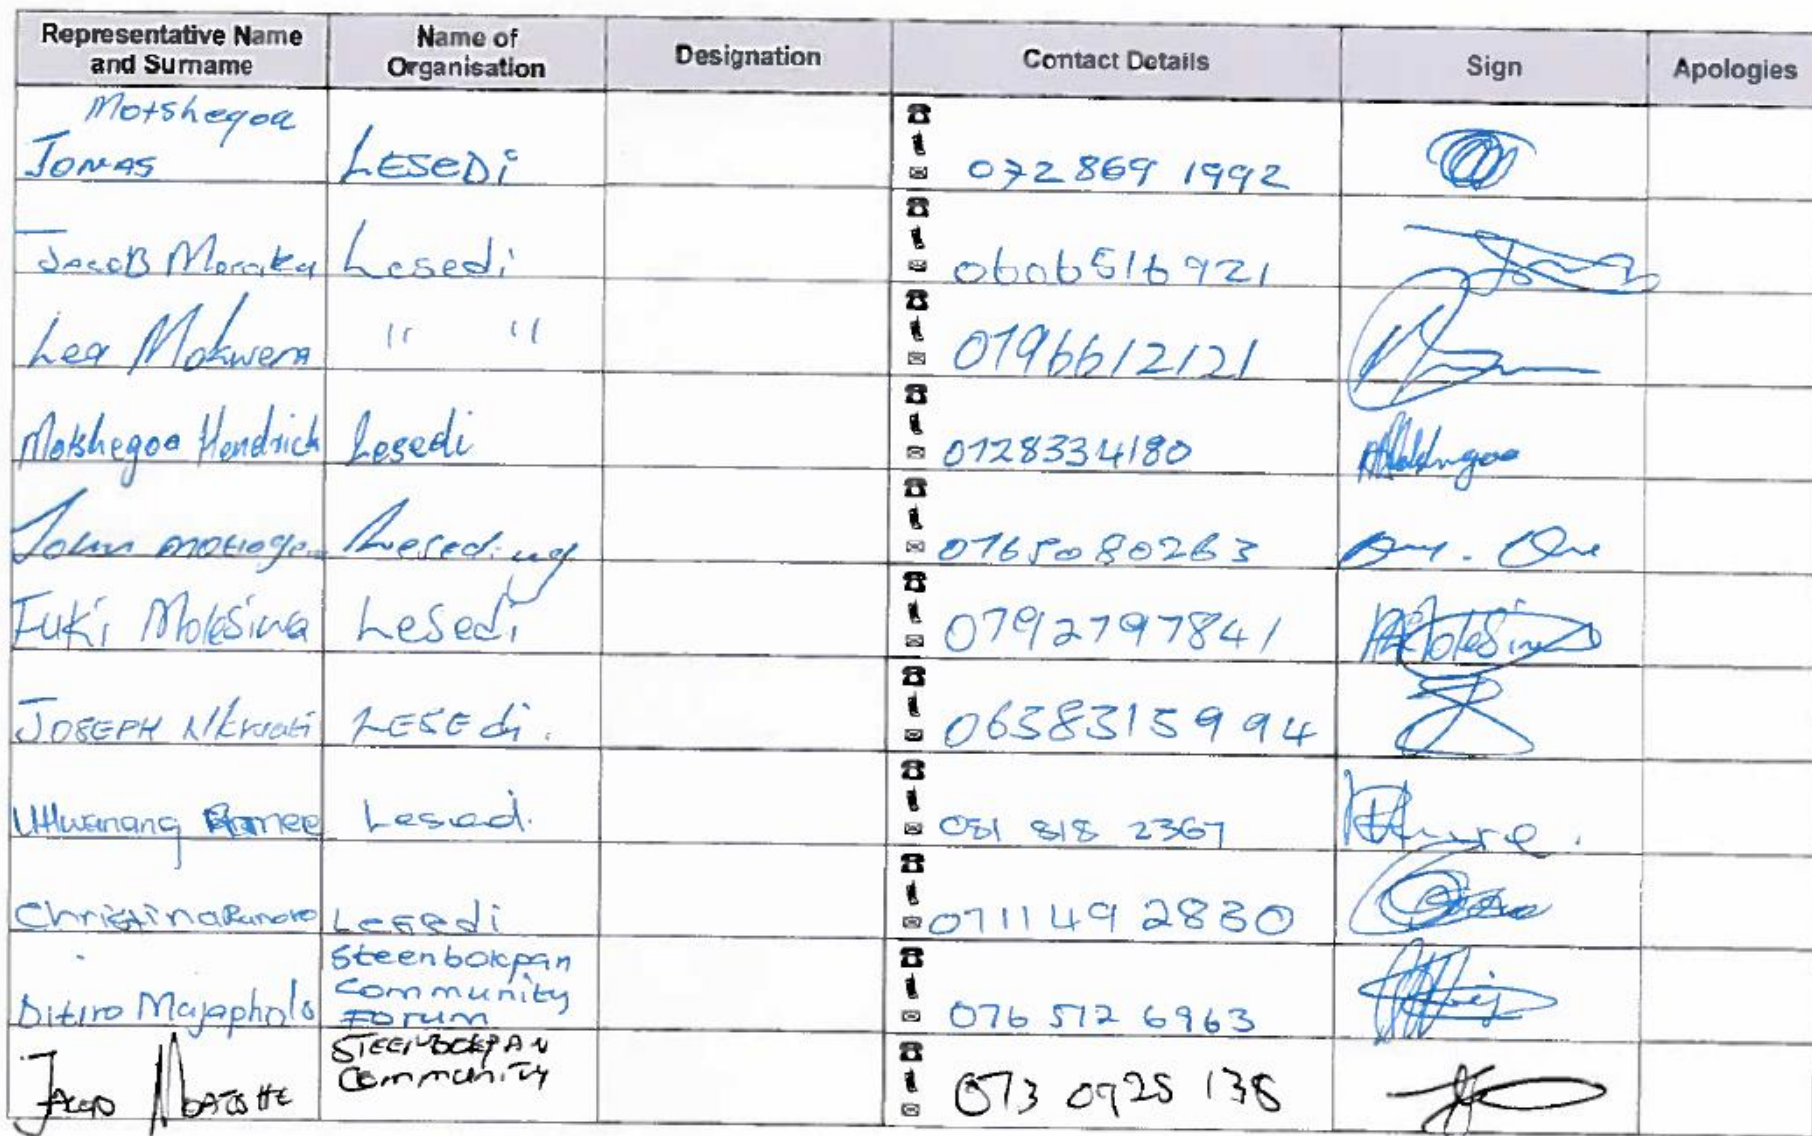 Representative Name and Surname Name of Organisation Designation Contact Details Sign Apologies
Motshegoa
JONAS LESEDi 072 869 1992
JacoB Moraka Lesedi 0606516921
Lea Mokwena " " 0796612121
Motshegoa Hendrick Lesedi 0728334180
John Lesedi-ng 0765080263
Fuki Molesiwa Lesedi 0792797841
JOSEPH LESEdi. 0658315994
Utlwanang Lesedi 081 818 2367
Christina Lesedi 0711492830
Ditiro Majapholo Steenbokpan Community Forum 076 512 6963
STEENBOKPAN Community 073 0925 138